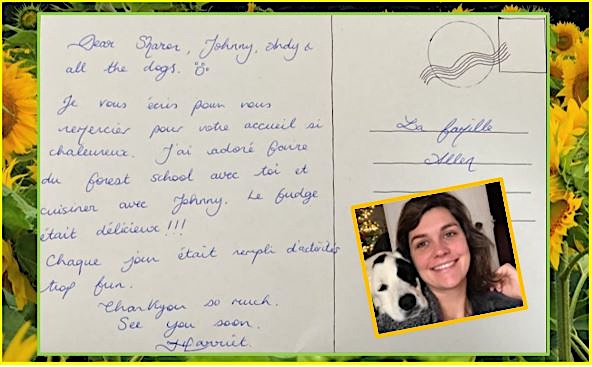 Dear Sharon, Johnny, Andy &
all the dogs.
Je vous écris pour vous
remercier pour votre accueil si
chaleureux. J'ai adoré faire
du forest school avec toi et
cuisiner avec Johnny. Le fudge
était délicieux!!!
Chaque jour était rempli d'activités
trop fun.
Thankyou so much.
See you soon.
Harriet.
La famille
Allen